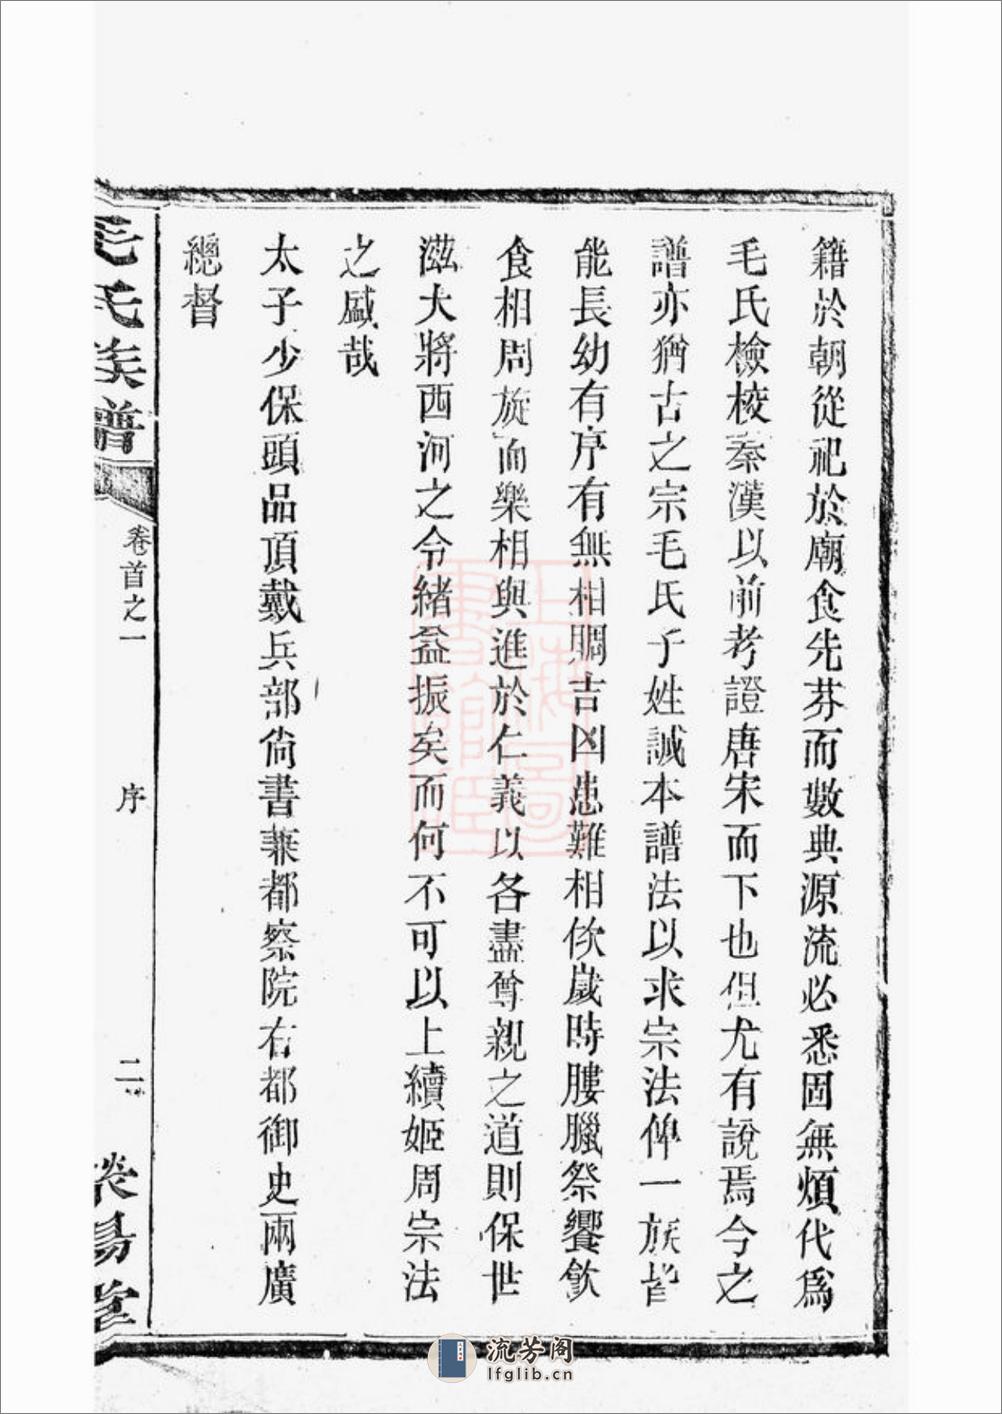 籍於朝從祀於廟食先芬而數典源流必悉固無煩代爲
毛氏檢校秦漢以前考證唐宋而下也但尤有說焉今之
譜亦猶古之宗毛氏子姓誠本譜法以求宗法俾一族皆
能長幼有序有無相賙吉凶患難相佽歲時膢臘祭饗飲
食相周旋而樂相與進於仁義以各盡尊親之道則保世
滋大將西河之令緒益振矣而何不可以上續姬周宗法
之盛哉
太子少保頭品頂戴兵部尙書兼都察院右都御史兩廣
總督
毛氏族譜
卷首之一
序
二
堂
上海圖書館藏
流芳阁
lfglib.cn